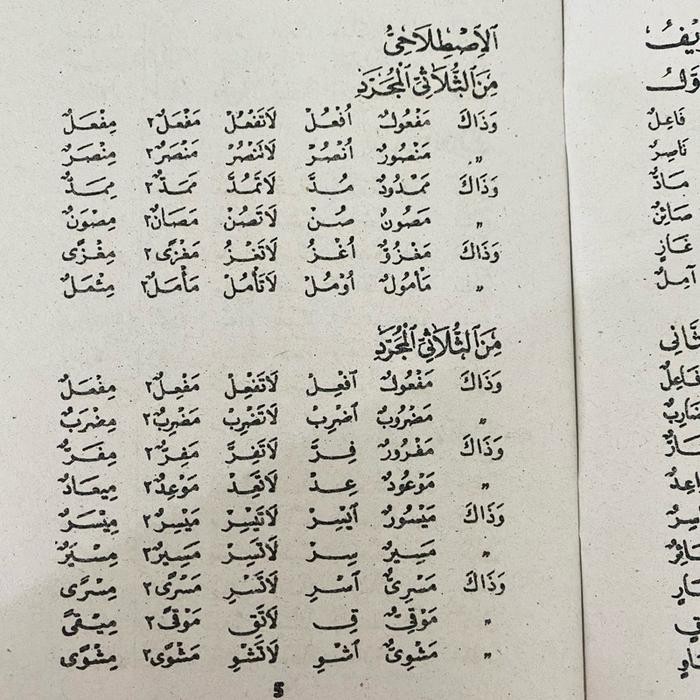 الْاِصْطِلَاحِيُّ
مِنَ الثُّلَاثِيِّ الْمُجَرَّدِ
وَذَاكَ مَفْعُولٌ اُفْعُلْ لَاتَفْعُلْ مَفْعَلٌ٢ مِفْعَلٌ
〃 مَنْصُورٌ اُنْصُرْ لَاتَنْصُرْ مَنْصَرٌ٢ مِنْصَرٌ
وَذَاكَ مَمْدُودٌ مُدَّ لَاتَمُدَّ مَمَدٌّ٢ مِمَدٌّ
〃 مَصُونٌ صُنْ لَاتَصُنْ مَصَانٌ٢ مِصْوَنٌ
وَذَاكَ مَغْزُوٌّ اُغْزُ لَاتَغْزُ مَغْزًى٢ مِغْزًى
〃 مَأْمُولٌ اُوْمُلْ لَاتَأْمُلْ مَأْمَلٌ٢ مِئْمَلٌ
مِنَ الثُّلَاثِيِّ الْمُجَرَّدِ
وَذَاكَ مَفْعُولٌ اِفْعِلْ لَاتَفْعِلْ مَفْعِلٌ٢ مِفْعَلٌ
〃 مَضْرُوبٌ اِضْرِبْ لَاتَضْرِبْ مَضْرِبٌ٢ مِضْرَبٌ
وَذَاكَ مَفْرُورٌ فِرَّ لَاتَفِرَّ مَفِرٌّ٢ مِفَرٌّ
〃 مَوْعُودٌ عِدْ لَاتَعِدْ مَوْعِدٌ٢ مِيعَادٌ
وَذَاكَ مَيْسُورٌ اَيْسِرْ لَاتَيْسِرْ مَيْسِرٌ٢ مِيْسَرٌ
〃 مَسِيرٌ سِرْ لَاتَسِرْ مَسِيرٌ٢ مِسْيَرٌ
وَذَاكَ مَسْرِيٌّ اَسْرِ لَاتَسْرِ مَسْرًى٢ مِسْرًى
〃 مَوْقِيٌّ قِ لَاتَقِ مَوْقًى٢ مِيْقًى
〃 مَشْوِيٌّ اَشْوِ لَاتَشْوِ مَشْوًى٢ مِشْوًى
5
فَاعِلٌ
نَاصِرٌ
مَادٌّ
صَائِنٌ
غَازٍ
آمِلٌ